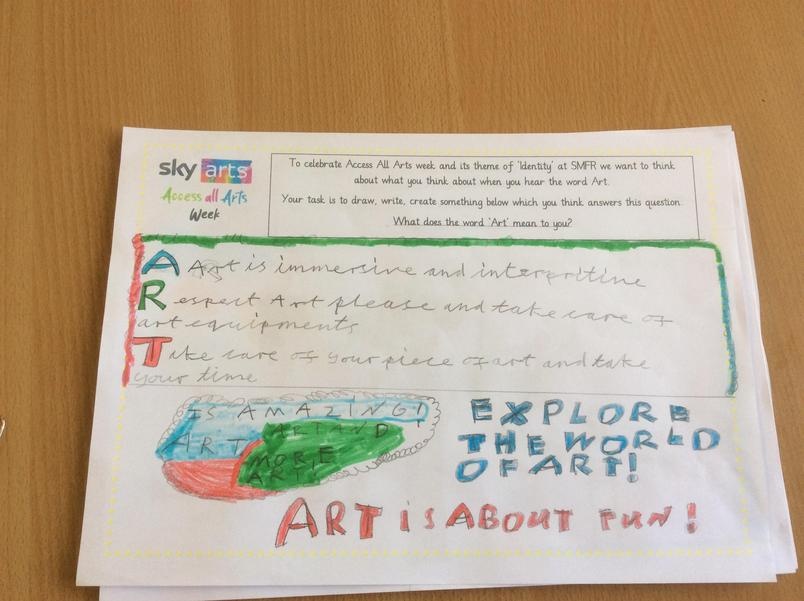 sky arts
Access all Arts
Week
To celebrate Access All Arts week and its theme of 'Identity' at SMFR we want to think
about what you think about when you hear the word Art.
Your task is to draw, write, create something below which you think answers this question.
What does the word 'Art' mean to you?
A Art is immersive and interpritine
Respect Art please and take care of
art equipments
Take care of your piece of art and take
your time
IS AMAZING!
ART ART AND
MORE
ART!
EXPLORE
THE WORLD
OF ART!
ART is ABOUT FUN!